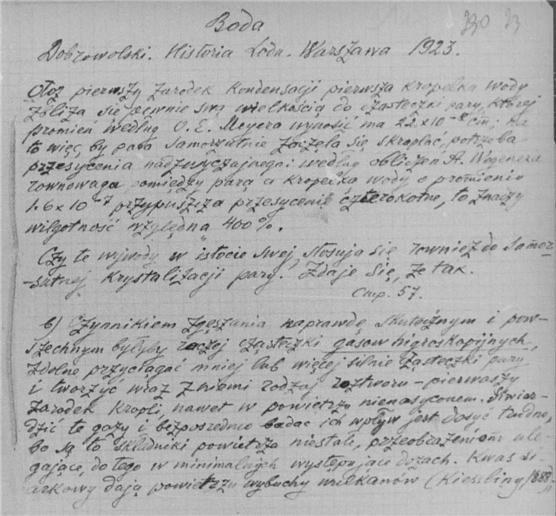 Вода
230 23
Dobrowolski. Historia Loda. Warszawa 1923.
Otoż pierwszy zarodek kondensacji pierwsza kropelka wody
zbliża się pewnie swą wielkością do cząsteczki pary, której
promień według O. E. Meyera wynosić ma 2.2 x 10⁻⁸ cm;
to więc by para samorzutnie zaczęła się skraplać, potrzeba
przesycenia nadzwyczajnego: według obliczeń A. Wegenera
równowaga pomiędzy parą a kropelką wody o promieniu
1.6 x 10⁻⁷ przypuszcza przesycenie czterokrotne, to znaczy
wilgotność względną 400%.
Czy te wywody w istocie swej stosują się również do samor-
zutnej krystalizacji pary. Zdaje się, że tak.
Стр. 57.
b) Czynnikiem zgęszania naprawdę skutecznym i pow-
szechnym byłyby raczej cząstki gazow higroskopijnych,
zdolne przyciągać mniej lub więcej silnie cząsteczki pary
i tworzyć wraz z niemi rodzaj roztworu - pierwszy
zarodek kropli, nawet w powietrzu nienasyconem. Stwier-
dzić te gazy i bezpośrednio badać ich wpływ jest dosyć trudno,
bo są to składniki powietrza niestałe, przeobrażeniom ule-
gające, do tego w minimalnych występujące dozach. Kwas si-
arkowy dają powietrzu wybuchy wulkanów (Kiessling, 1888),